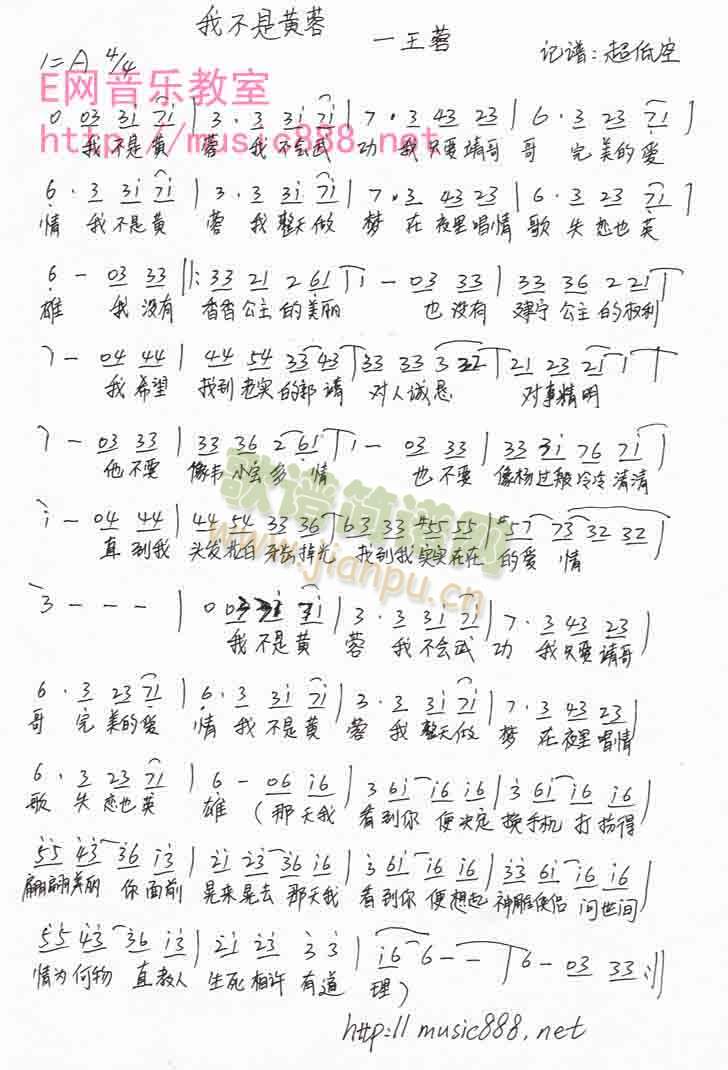 我不是黄蓉
—王蓉
记谱：超低空
1=A 4/4
E网音乐教室
http://music888.net
0 03 3i 7i | 3 · 3 3i 7i | 7 · 3 43 23 | 6 · 3 23 7i |
我不是黄 蓉 我不会武 功 我只要靖哥 哥 完美的爱
6 · 3 3i 7i | 3 · 3 3i 7i | 7 · 3 43 23 | 6 · 3 23 7i |
情 我不是黄 蓉 我整天做 梦 在夜里唱情 歌 失恋也英
6 - 03 33 ||: 33 21 2 61 | 1 - 03 33 | 33 36 2 21 |
雄 我没有 香香公主的美丽 也没有 建宁公主的权利
1 - 04 44 | 44 54 33 43 | 33 33 3 22 | 21 23 21 1 |
我希望 找到老实的郭靖 对人诚恳 对事精明
1 - 03 33 | 33 36 2 61 | 1 - 03 33 | 33 3i 76 7i |
他不要 像韦小宝多情 也不要 像杨过般冷冷清清
i - 04 44 | 44 54 33 36 | 63 33 #455 55 | #57 73 32 32 |
直到我 头发花白牙齿掉光 找到我实实在在 的爱情
3 - - - | 0 03 3i 7i | 3 · 3 3i 7i | 7 · 3 43 23 |
我不是黄 蓉 我不会武 功 我只要靖哥
6 · 3 23 7i | 6 · 3 3i 7i | 3 · 3 3i 7i | 7 · 3 43 23 |
哥 完美的爱 情 我不是黄 蓉 我整天做 梦 在夜里唱情
6 · 3 23 7i | 6 - 06 i6 | 3 6i i6 i6 | 3 6i i6 i6 |
歌 失恋也英 雄 (那天我 看到你 便决定 换手机 打扮得
55 43 36 i3 | 2i 23 36 i6 | 3 6i i6 i6 | 33 6i i6 i6 |
翩翩美丽 你面前 晃来晃去 那天我 看到你 便想起 神雕侠侣 问世间
55 43 36 i3 | 2i 23 3 3 | i6 6 - - | 6 - 03 33 :||
情为何物 直教人 生死相许 有道 理)
http://music888.net
歌谱简谱网
www.jianpu.cn